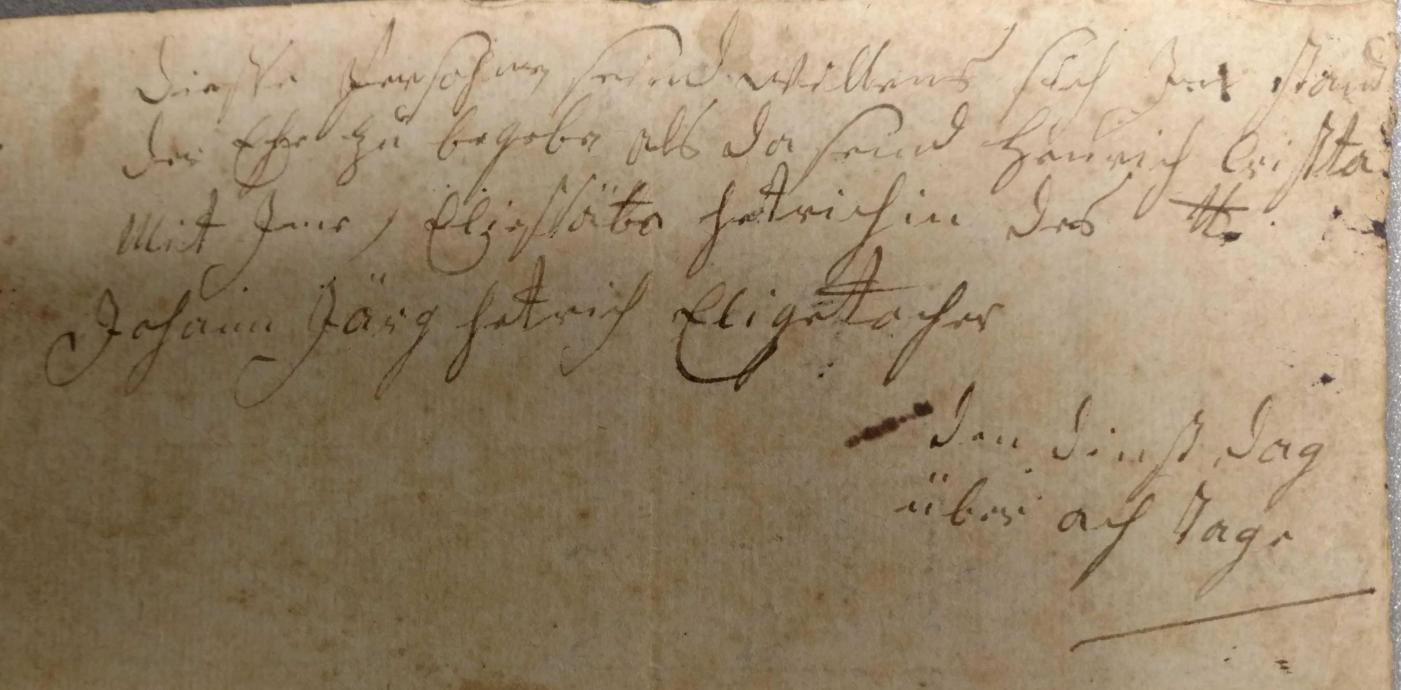 Diesse Persohnen seind willens sich Im stand
der Ehe zu begebe als da seind Henrich Crista
Mit Jme / Eliessäba hetrichin des
Johann Järg hetrich Eligetocher
den dinst dag
über ach Tage